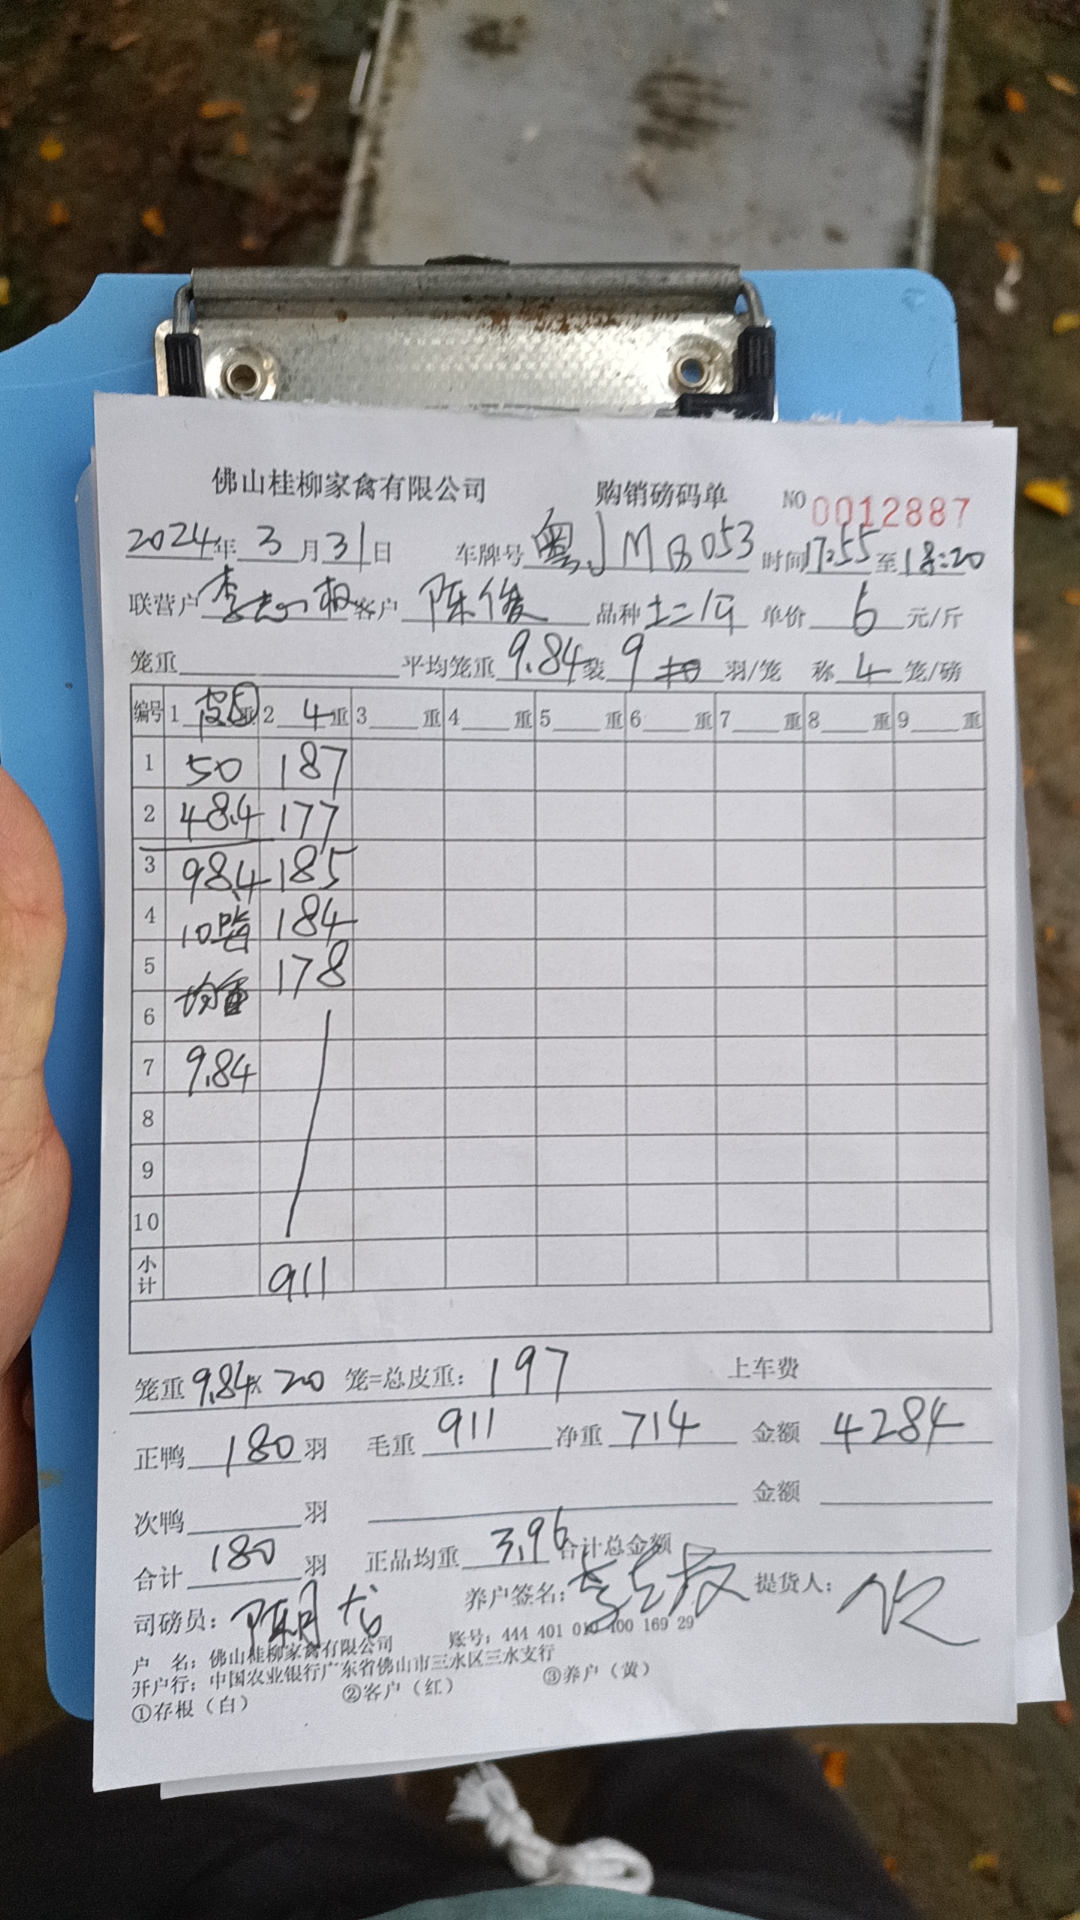 佛山桂柳家禽有限公司 购销磅码单 NO 0012887
2024年 3 月 31 日 车牌号 粤J MB053 时间 17:55 至 18:20
联营户 李志 客户 陈俊 品种 土二 单价 6 元/斤
笼重 平均笼重 9.84 装 9 羽/笼 称 4 笼/磅
编号 1 皮 重 2 4 重 3 重 4 重 5 重 6 重 7 重 8 重 9 重
1 50 187
2 48.4 177
3 98.4 185
4 10 184
5 178
6 均重
7 9.84
8
9
10
小计 911
笼重 9.84 x 20 笼=总皮重: 197 上车费
正鸭 180 羽 毛重 911 净重 714 金额 4284
次鸭 羽 金额
合计 180 羽 正品均重 3.96 合计总金额
司磅员: 养户签名: 提货人:
户 名: 佛山桂柳家禽有限公司 账号: 444 401 010 400 169 29
开户行: 中国农业银行广东省佛山市三水区三水支行
①存根(白) ②客户(红) ③养户(黄)